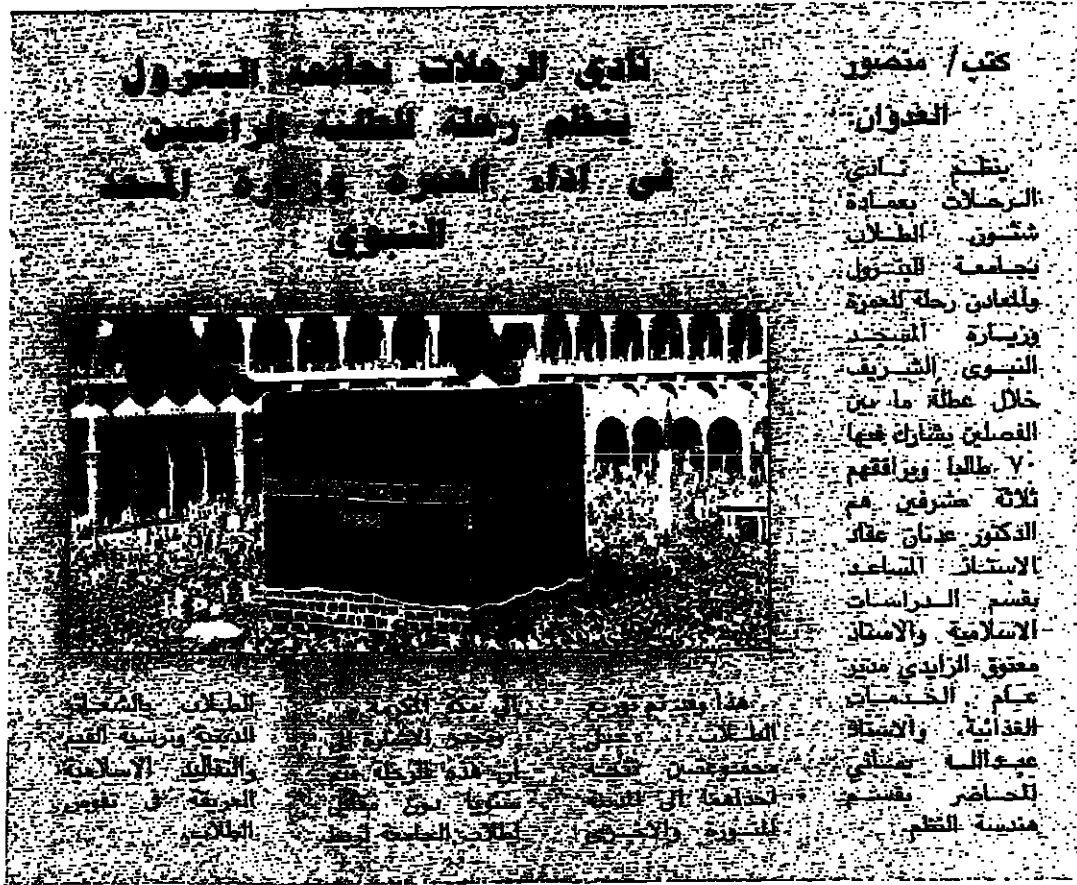 نادي الرحلات بجامعة البترول
ينظم رحلة للطلبه الراغبين
في اداء العمرة وزيارة المسجد
النبوي
كتب/ منصور
العدوان:
ينظم نادي
الرحلات بعمادة
شئون الطلاب
بجامعة البترول
والمعادن رحلة للعمرة
وزيارة المسجد
النبوى الشريف
خلال عطلة ما بين
الفصلين يشارك فيها
٧٠ طالبا ويرافقهم
ثلاثة مشرفين هم
الدكتور عدنان عقاد
الاستاذ المساعد
بقسم الدراسات
الاسلامية والاستاذ
معتوق الزايدي مدير
عام الخدمات
الغذائية، والاستاذ
عبدالله
المحاضر بقسم
هندسة النظم.
هذا وقد تم توزيع
الطلاب
مجموعتين
احداهما الى المدينة
المنورة والاخرى
الى مكة المكرمة
هذه الرحلة
سنويا
لطلاب الجامعة لربط
الطلاب بالشعائر
الدينية القيم
والتقاليد الاسلامية
العريقة في نفوس
الطلاب.